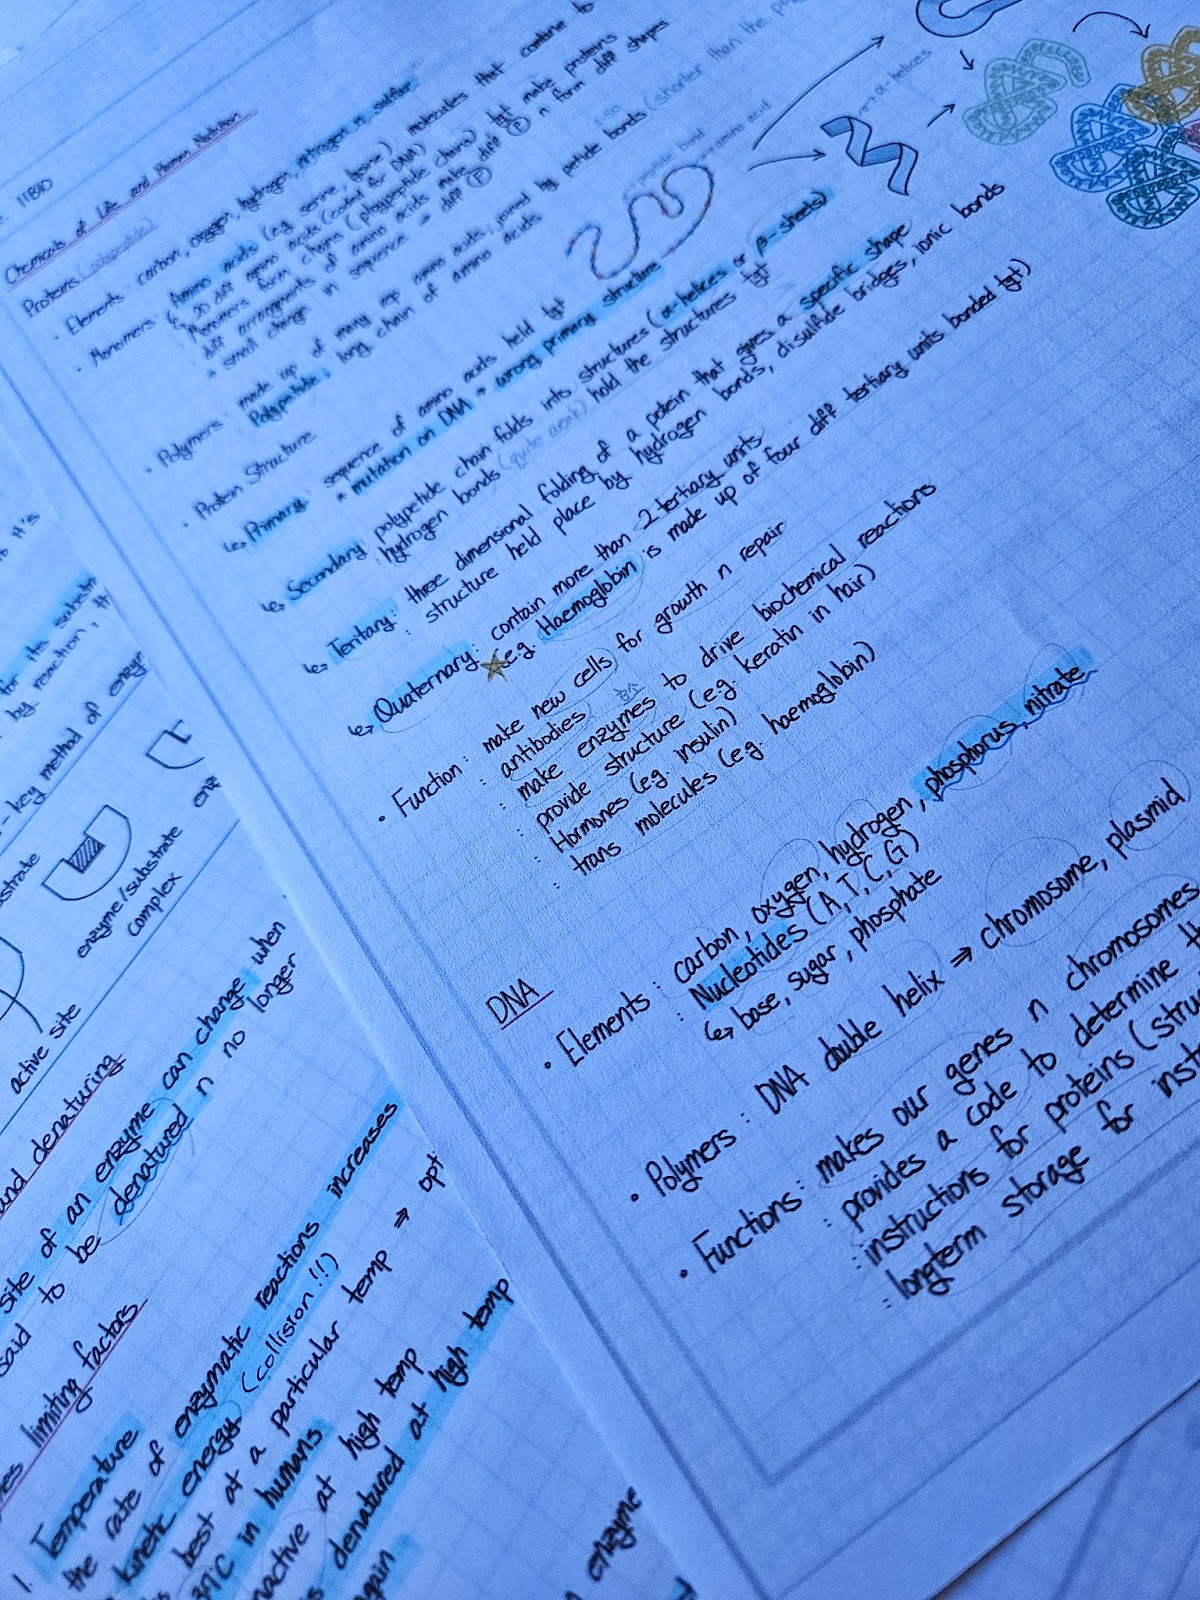 11BIO
Chemicals of Life and Human Nutrition
Proteins (polypeptide)
• Elements: carbon, oxygen, hydrogen, nitrogen n sulfur
• Monomers: Amino acids (e.g. serine,
molecules that combine to
↳ 20 diff amino acids (coded for DNA)
: Monomers form chains (polypeptide chains) tgt make proteins
: diff arrangements of amino acids make diff Ⓟ n form diff shapes
* small change in sequence = diff Ⓟ
• Polymers: made up of many rep amino acids, joined by petide bonds (shorter than the
: Polypeptide: long chain of amino acids
peptide bond
amino acid
α-helices
• Protein Structure
↳ Primary: sequence of amino acids held tgt
* mutation on DNA → wrong primary structure
↳ Secondary: polypeptide chain folds into structures (α-helices or β-sheets)
: hydrogen bonds (quite weak) hold the structures tgt
↳ Teritary: three dimensional folding of a protein that gives a specific shape
: structure held place by hydrogen bonds, disulfide bridges, ionic bonds
↳ Quaternary: contain more than 2 tertiary units
e.g. Haemoglobin is made up of four diff tertiary units bonded tgt)
• Function: make new cells for growth n repair
: antibodies
: make enzymes to drive biochemical reactions
: provide structure (e.g. keratin in hair)
: Hormones (e.g. insulin)
: trans molecules (e.g. haemoglobin)
DNA
• Elements: carbon, oxygen, hydrogen, phosphorus, nitrate
: Nucleotides (A, T, C, G)
↳ base, sugar, phosphate
• Polymers: DNA double helix ⇒ chromosome, plasmid
• Functions: makes our genes n chromosomes
: provides a code to determine th
: instructions for proteins (struc
: longterm storage for inst
it's
for its substr
by. reaction, th
- key method of enzym
strate
enzyme/substrate
complex
enz
active site
and denaturing
site of an enzyme can change when
said to be denatured n no longer
es limiting factors
1. Temperature
the rate of enzymatic reactions increases
kinetic energy (collision!!)
best at a particular temp ⇒ opti
C in humans
nactive at high temp
s denatured at high temp
gain
enzyme